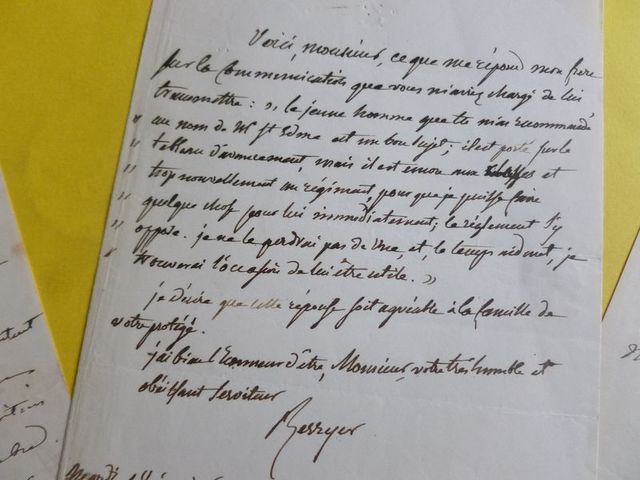 Voici, monsieur, ce que me répond mon frère
sur la Communication que vous m'aviez chargé de lui
transmettre : », le jeune homme que tu m'as recommandé
" au nom de Mr St Edme est un bon sujet; il est porté sur le
" tableau d'avancement, mais il est encore et
" trop nouvellement au régiment, pour que je puisse faire
" quelque chose pour lui immédiatement; le règlement s'y
" oppose. je ne le perdrai pas de vue, et, le temps aidant, je
" trouverai l'occasion de lui être utile. »
je désire que cette réponse soit agréable à la famille de
votre protégé.
j'ai bien l'honneur d'être, Monsieur, votre très humble et
obéissant serviteur
Berryer